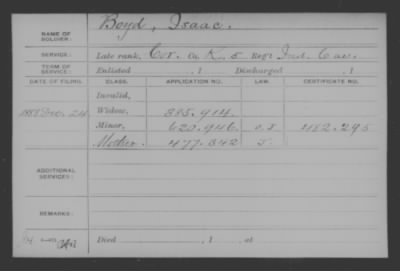 NAME OF SOLDIER: Boyd, Isaac.
SERVICE: Late rank, Cor. Co. K, 5 Reg't Ind. Cav.
TERM OF SERVICE: Enlisted , 1 Discharged , 1
DATE OF FILING. CLASS. APPLICATION NO. LAW. CERTIFICATE NO.
Invalid,
1888 Dec. 24 Widow, 385.414.
Minor, 620.946. 482.295
Mother. 477.342
ADDITIONAL SERVICES:
REMARKS:
Died , 1 , at